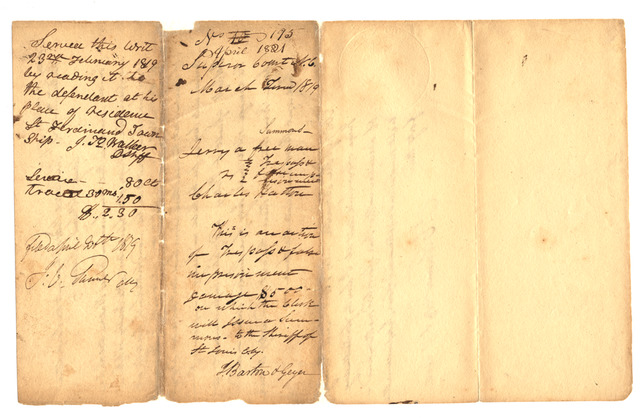 Served this Writ
23rd February 1819
by reading it to
the defendant at his
place of residence
St Ferdinand Town
ship - J. P. Walker
D shff
Service - 80 cts
travel 30 ms, 1.50
$, 2.30
filed april 20th 1819
No 195
April 1821
Superior Court
March Term 1819
Summons -
Jerry a free man
vs Trespass &
Charles Hatton
This is an action
of Trespass & false
imprisonment
damage $500 -
on which the Clerk
will issue a Sum-
mons - to the Sheriff of
St Louis Coty.
Barton & Geyer